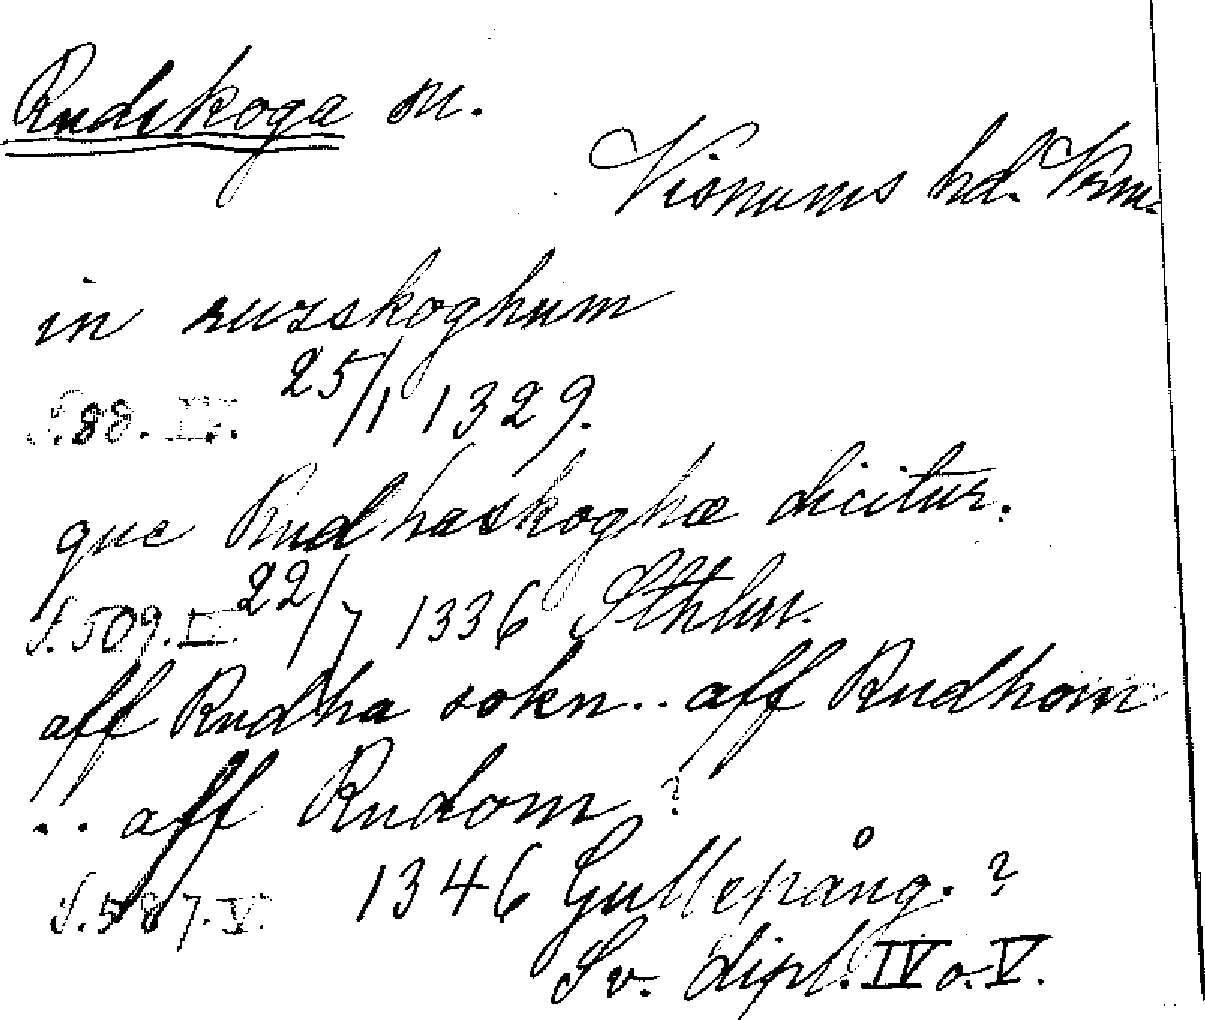 Rudskoga sn.
Visnums hd. Vrm.
in ruzskoghum
S. 88. IV. 25/1 1329.
que Rudhaskoghæ dicitur.
S. 509. IV. 22/7 1336 Sthlm.
aff Rudha sokn .. aff Rudhom
.. aff Rudom ?
S. 587. V. 1346 Gullspång. ?
Sv. dipl. IV o. V.